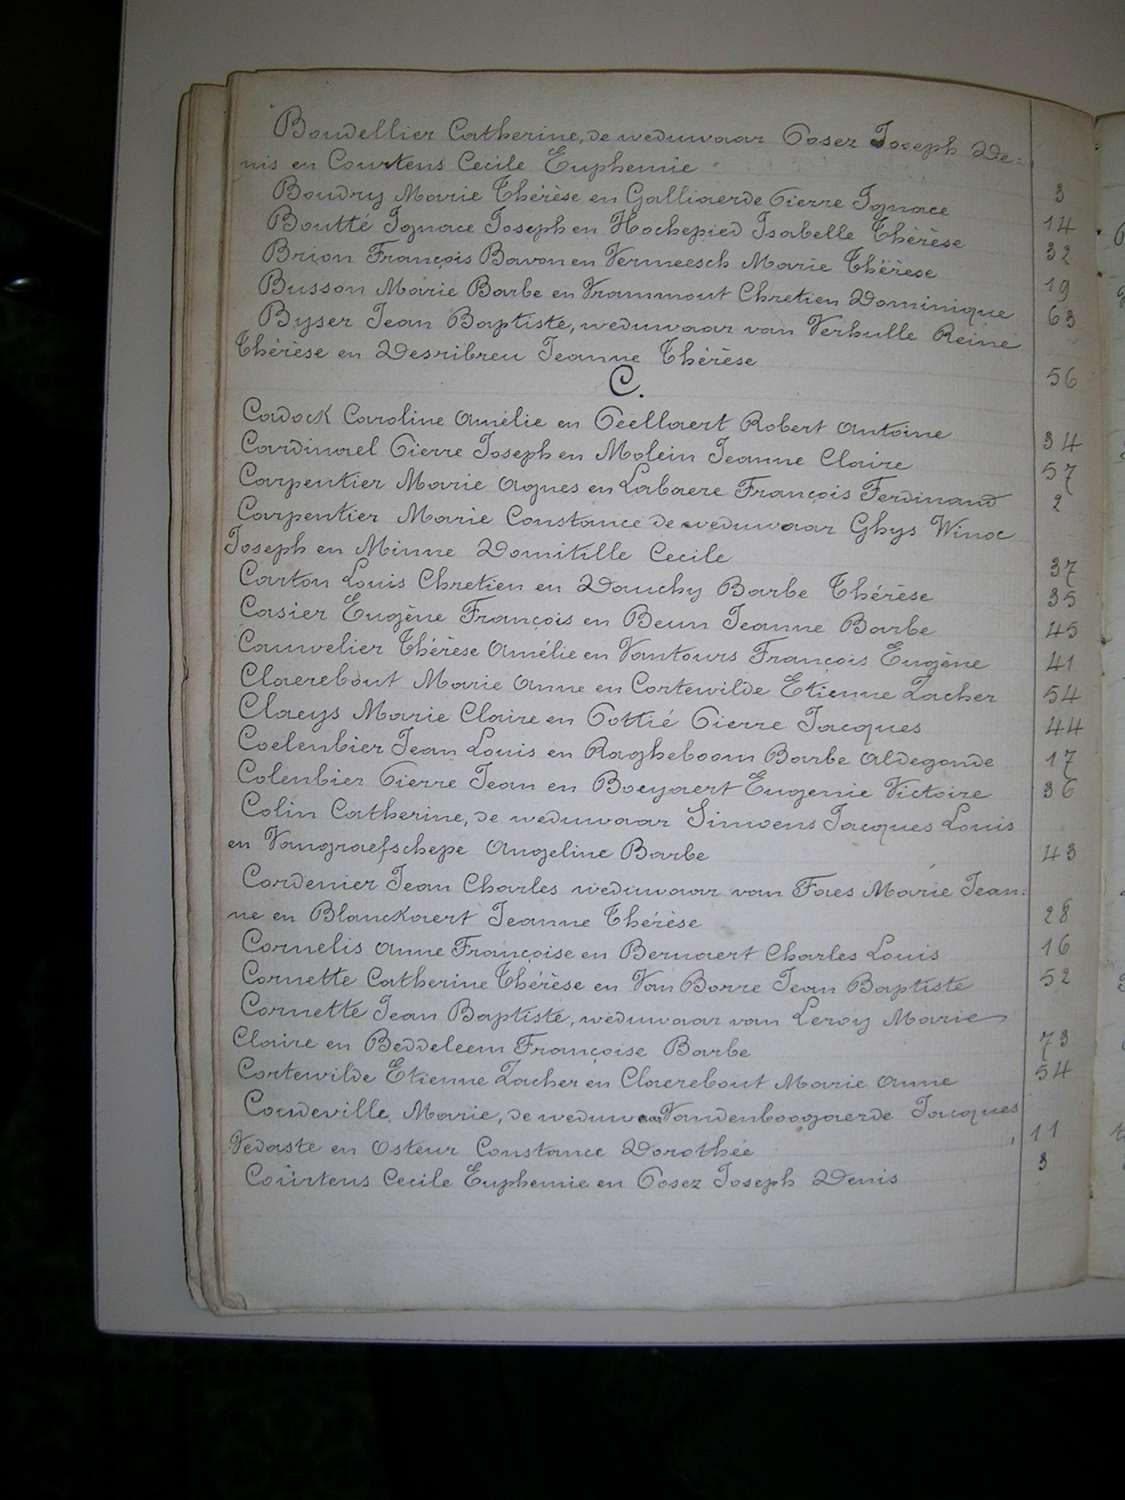 Boudellier Catherine, de weduwaar Posez Joseph De-
nis en Courtens Cecile Euphemie 3
Boudry Marie Thérèse en Galliaerde Pierre Ignace 14
Boutté Ignace Joseph en Hochepied Isabelle Thérèse 32
Brion François Bavon en Vermeesch Marie Thérèse 19
Busson Marie Barbe en Vrammout Chretien Dominique 63
Byser Jean Baptiste, weduwaar van Verhulle Reine
Thérèse en Desribreu Jeanne Thérèse 56
C.
Cadock Caroline Amélie en Peellaert Robert Antoine 34
Cardinael Pierre Joseph en Molein Jeanne Claire 57
Carpentier Marie Agnes en Labaere François Ferdinand 2
Carpentier Marie Constance de weduwaar Ghys Winoc
Joseph en Minne Domitille Cecile 37
Carton Louis Chretien en Dauchy Barbe Thérèse 35
Casier Eugène François en Beun Jeanne Barbe 45
Cauwelier Thérèse Amélie en Vantours François Eugène 41
Claerebout Marie Anne en Cortewilde Etienne Zacher 54
Claeys Marie Claire en Pottié Pierre Jacques 44
Coelenbier Jean Louis en Ragheboom Barbe Aldegonde 17
Colenbier Pierre Jean en Boeyaert Eugenie Victoire 36
Colin Catherine, de weduwaar Simoens Jacques Louis
en Vangraefschepe Angeline Barbe 43
Cordenier Jean Charles weduwaar van Faes Marie Jean-
ne en Blanckaert Jeanne Thérèse 28
Cornelis Anne Françoise en Bernaert Charles Louis 16
Cornette Catherine Thérèse en Van Borre Jean Baptiste 52
Cornette Jean Baptiste, weduwaar van Leroy Marie
Claire en Beddeleem Françoise Barbe 73
Cortewilde Etienne Zacher en Claerebout Marie Anne 54
Coudeville Marie, de weduwaar Vandenboogaerde Jacques
Vedaste en Osteur Constance Dorothée 11
Courtens Cecile Euphemie en Posez Joseph Denis 3